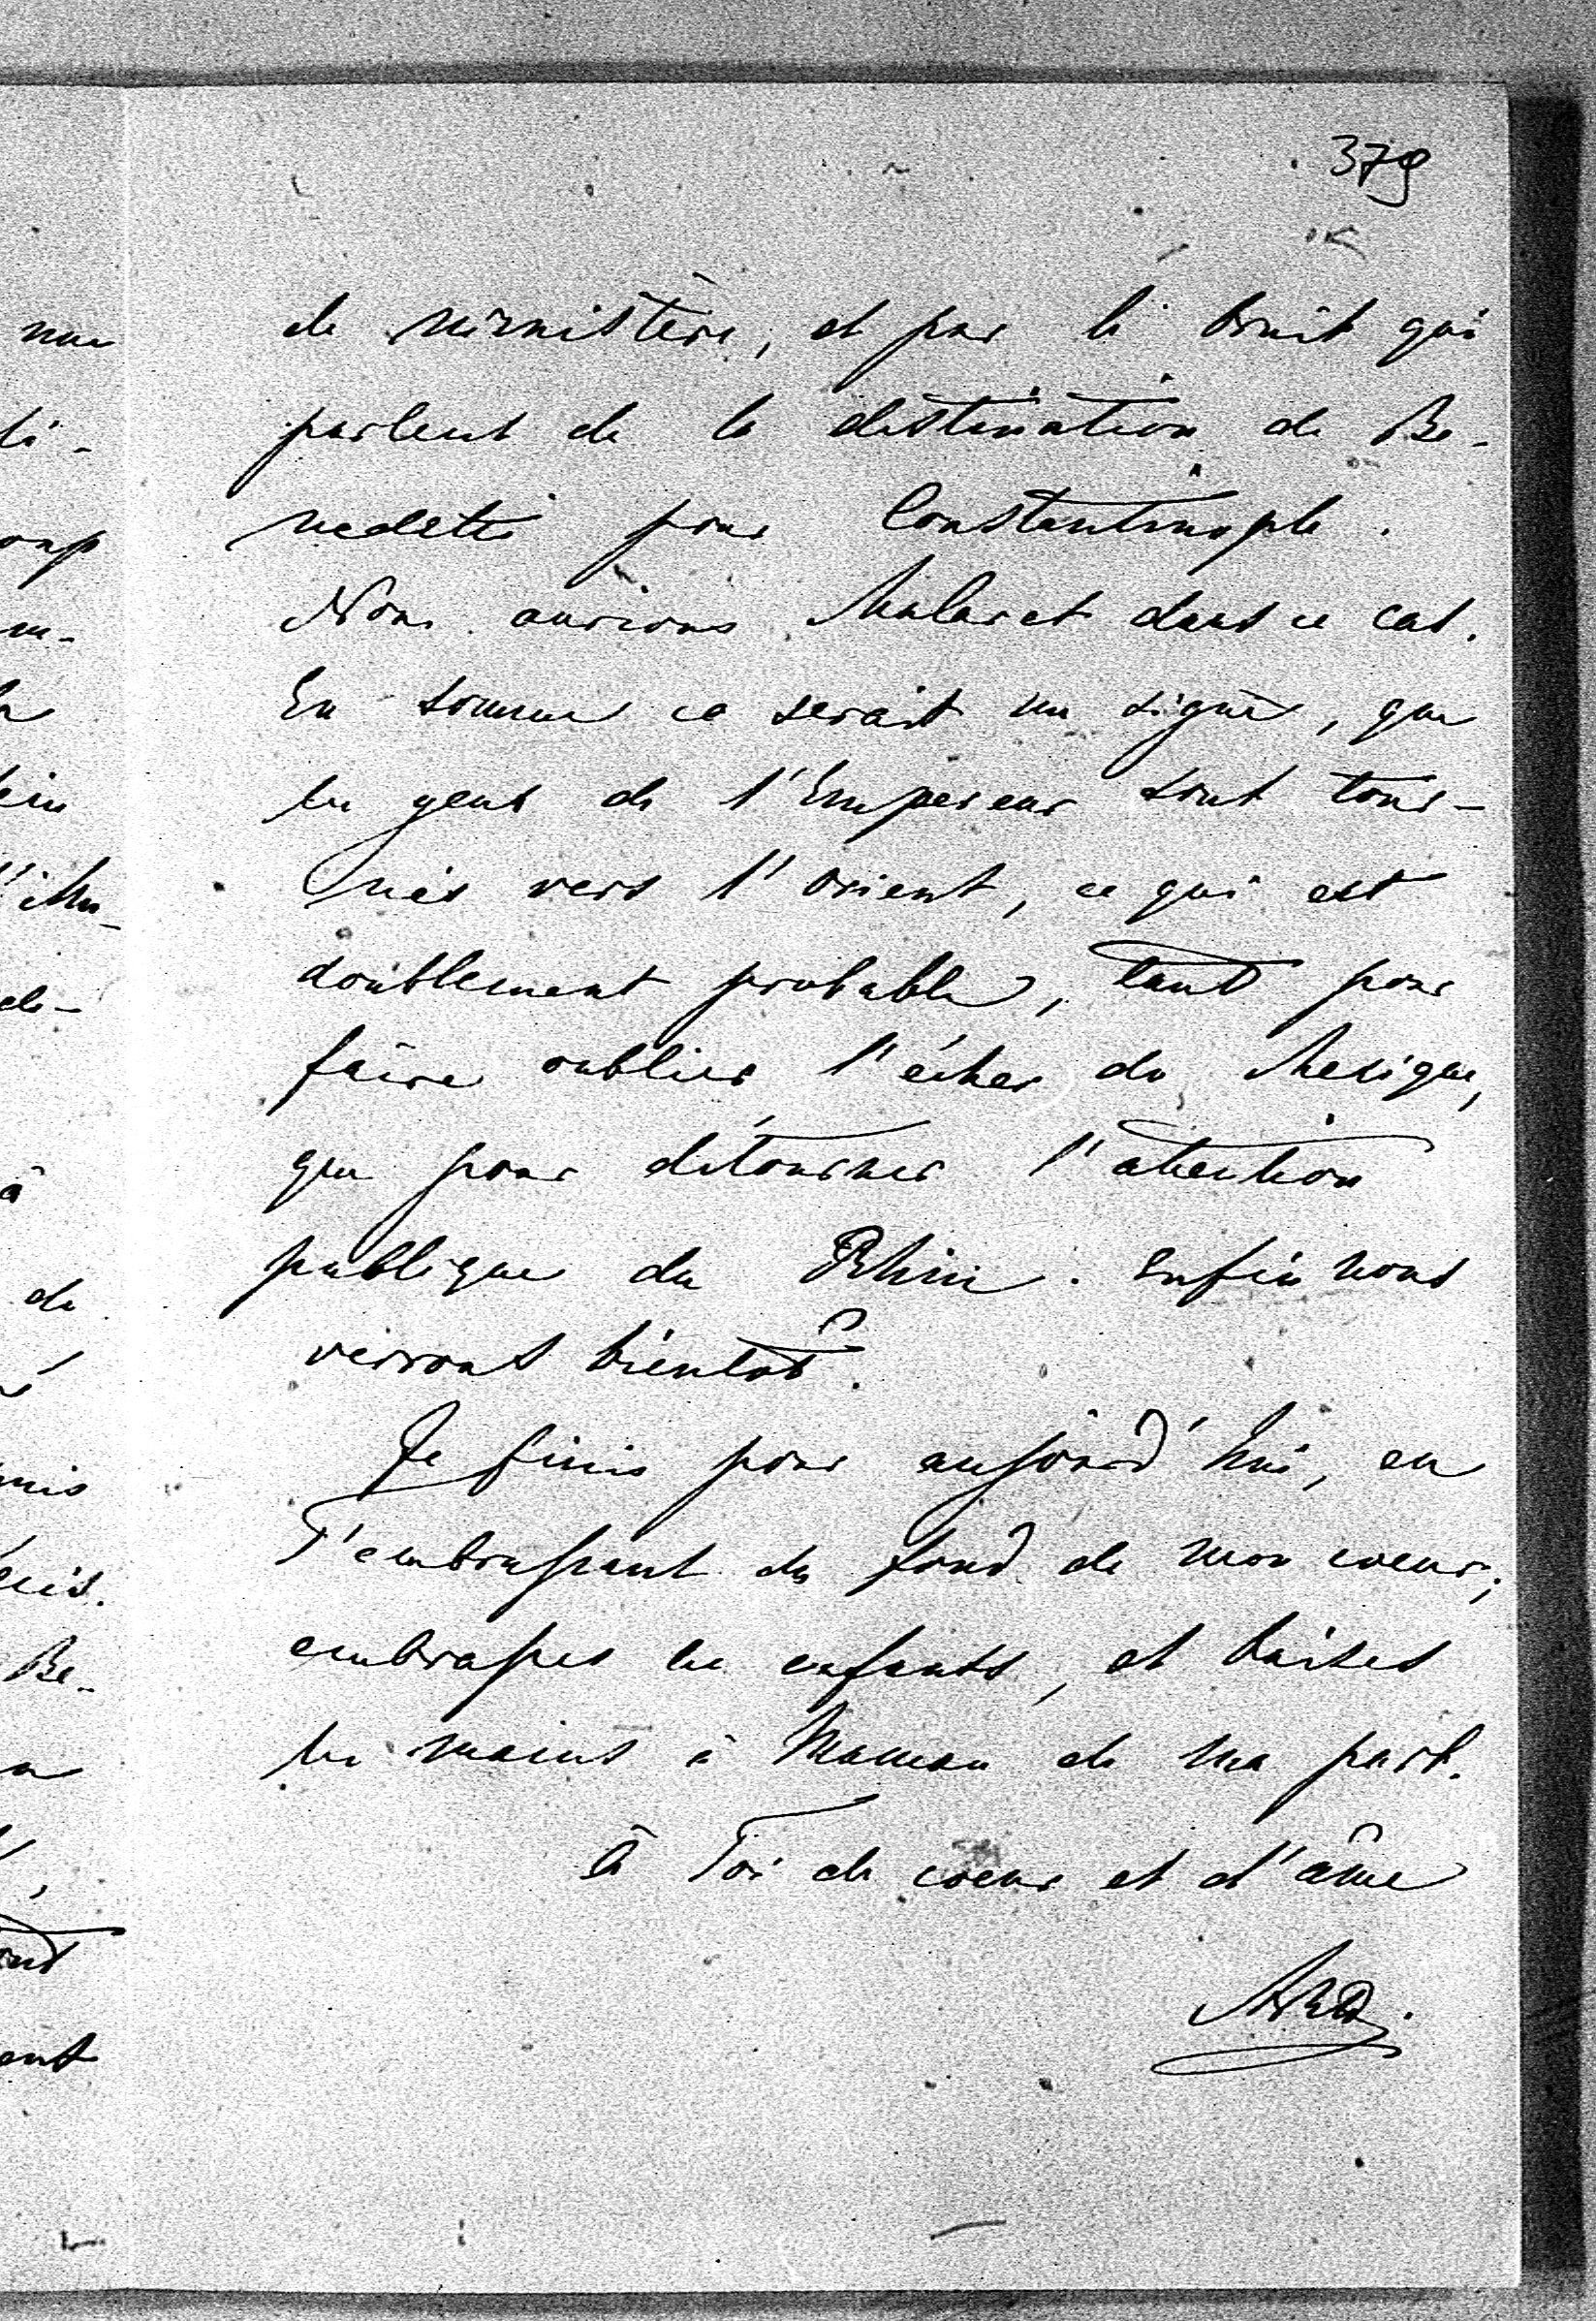 379
de ministère, et par le bruit qui
parlent de la destination de Be-
nedetti pour Constantinople.
Nous aurions Malaret dans ce cas.
En somme ce serait un signe, que
les yeux de l'Empereur sont tour-
nés vers l'orient, ce qui est
doublement probable, tant pour
faire oublier l'échec du Mexique,
que pour détourner l'attention
publique du Rhin. Enfin nous
verrons bientôt.
Je finis pour aujourd'hui, en
T'embrassant du fond de mon coeur;
embrasses les enfants, et baises
les mains à Maman de ma part.
à Toi de coeur et d'âme